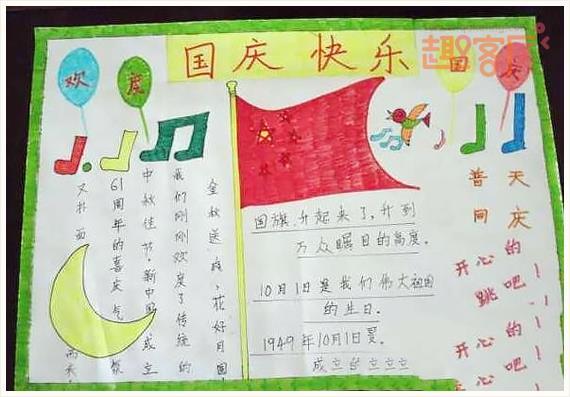 国庆快乐
欢度
国庆
趣客屋
普天
同庆
开心的
跳吧！
开心的
吧！
金秋送爽、花好月圆
我们刚刚欢度了传统的
中秋佳节,新中国成立
61周年的喜庆气氛
又扑面
而来
国旗,升起来了,升到
万众瞩目的高度。
10月1日是我们伟大祖国
的生日。
1949年10月1日
成立